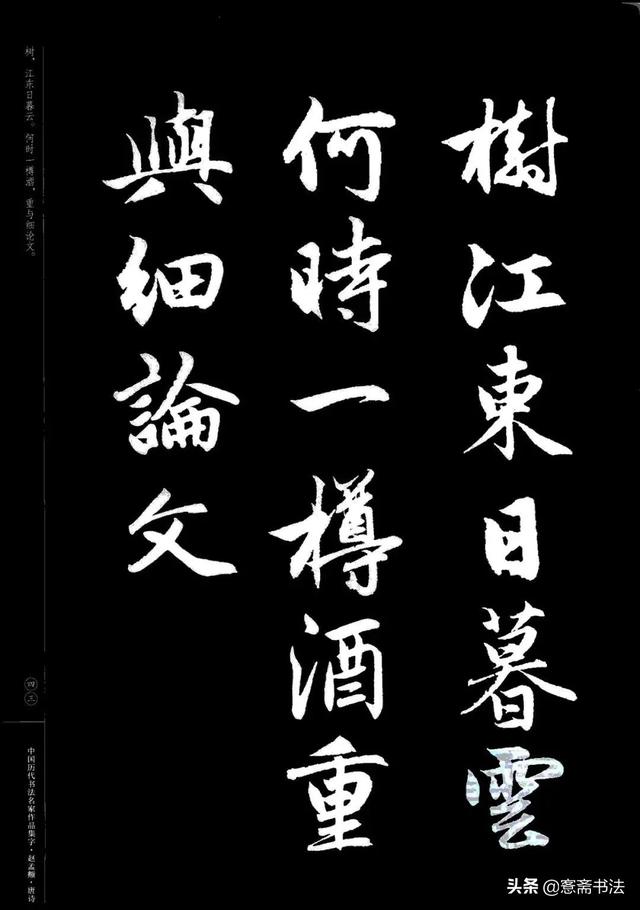 樹江東日暮雲
何時一樽酒重
與細論文
树，江东日暮云。何时一樽酒，重与细论文。
四三
中国历代书法名家作品集字·赵孟頫·唐诗
头条@窓斋书法